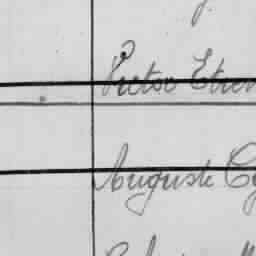 Victor Etien
Auguste Cy